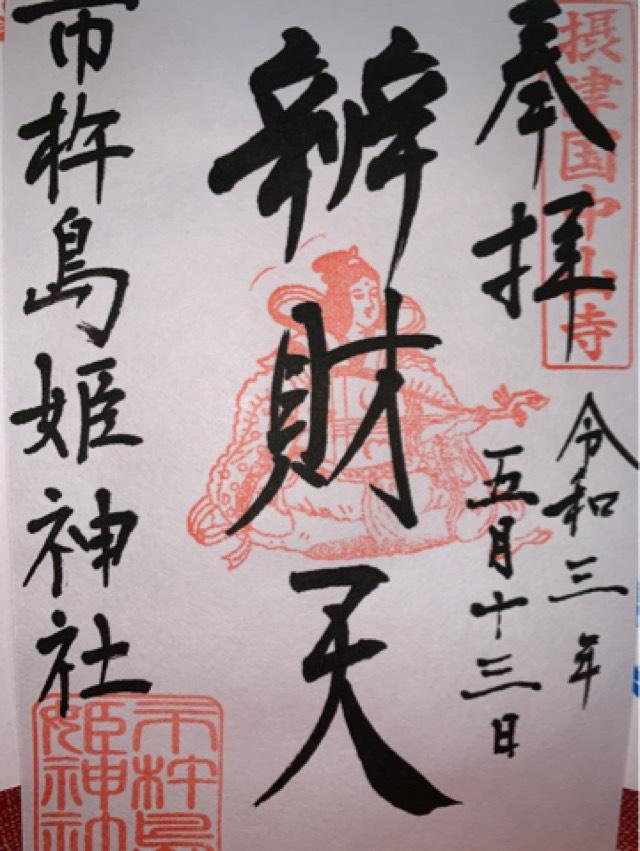 奉拝
摂津国中山寺
令和三年
五月十三日
辨財天
市杵島姫神社
市杵島
姫神社